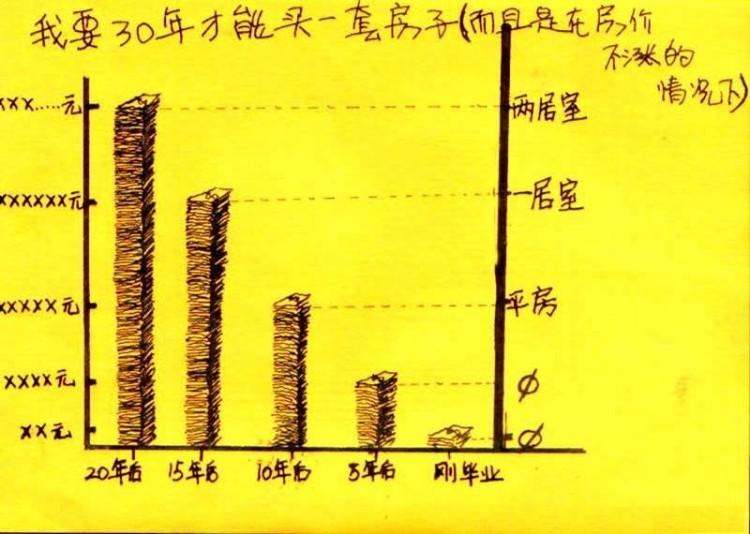 我要30年才能买一套房子(而且是在房价
不涨的
情况下)
xxx.....元
两居室
xxxxxx元
一居室
xxxxx元
平房
xxxx元
φ
xx元
φ
20年后 15年后 10年后 5年后 刚毕业